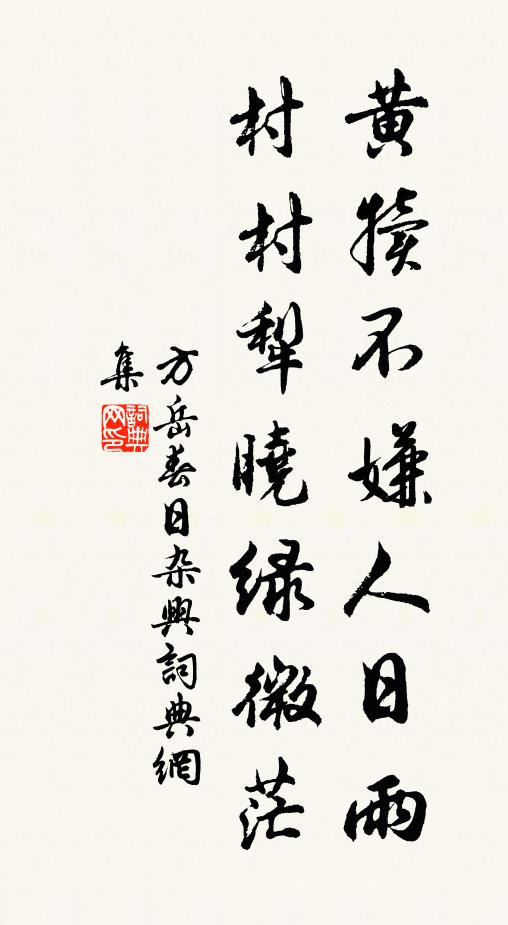 黄犢不嫌人日雨
村村犁曉緑微茫
方岳春日杂興詞典網
集
詞典
网印